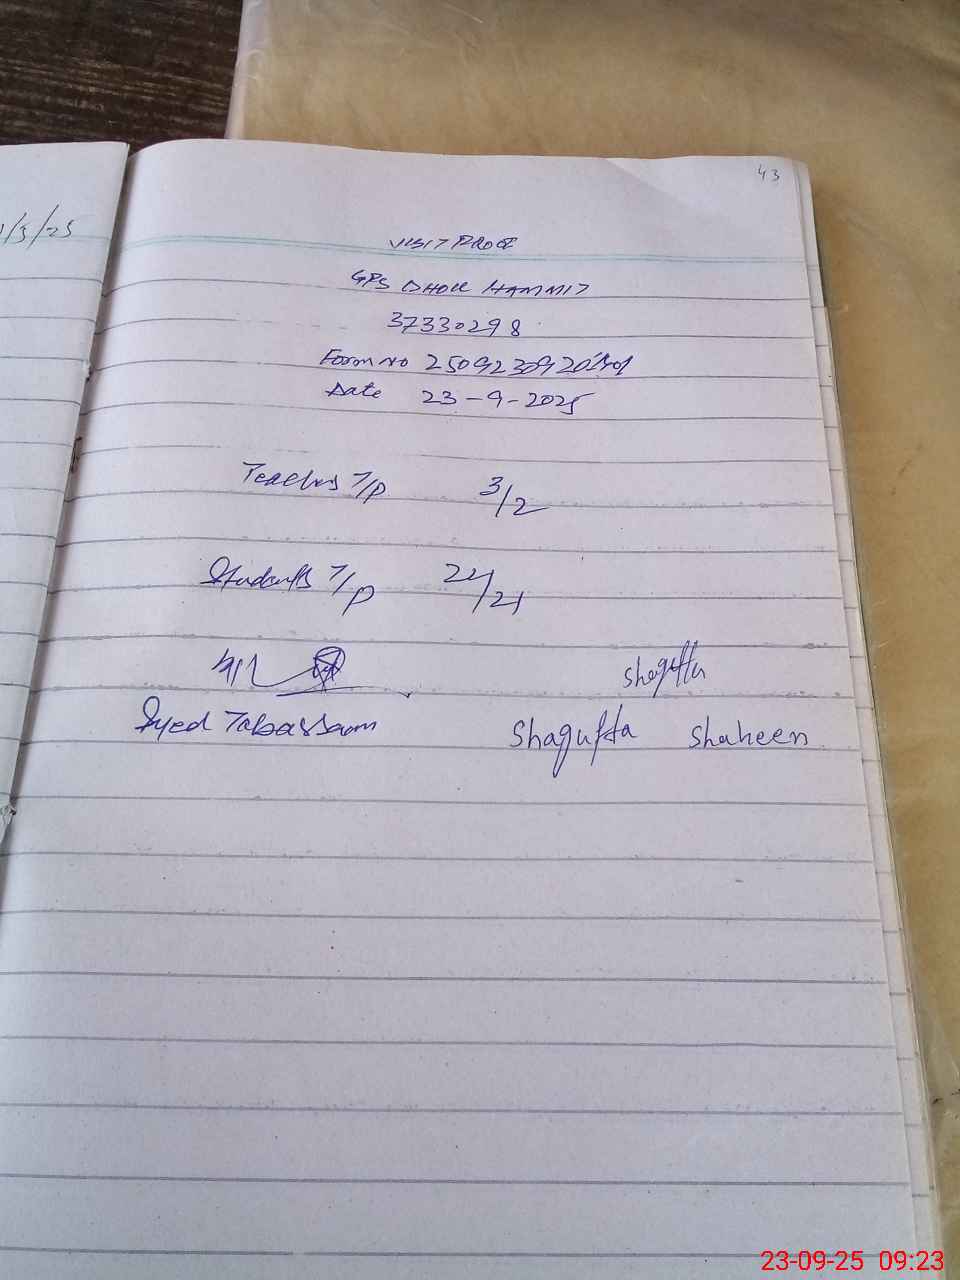 43
/3/25
VISIT PROOF
GPS DHOK HAMMID
37330298
Form no
Date 23-9-2025
Teachers T/P 3/2
Students T/P 24/21
Shagufta
Syed Tabassam Shagufta Shaheen
23-09-25 09:23